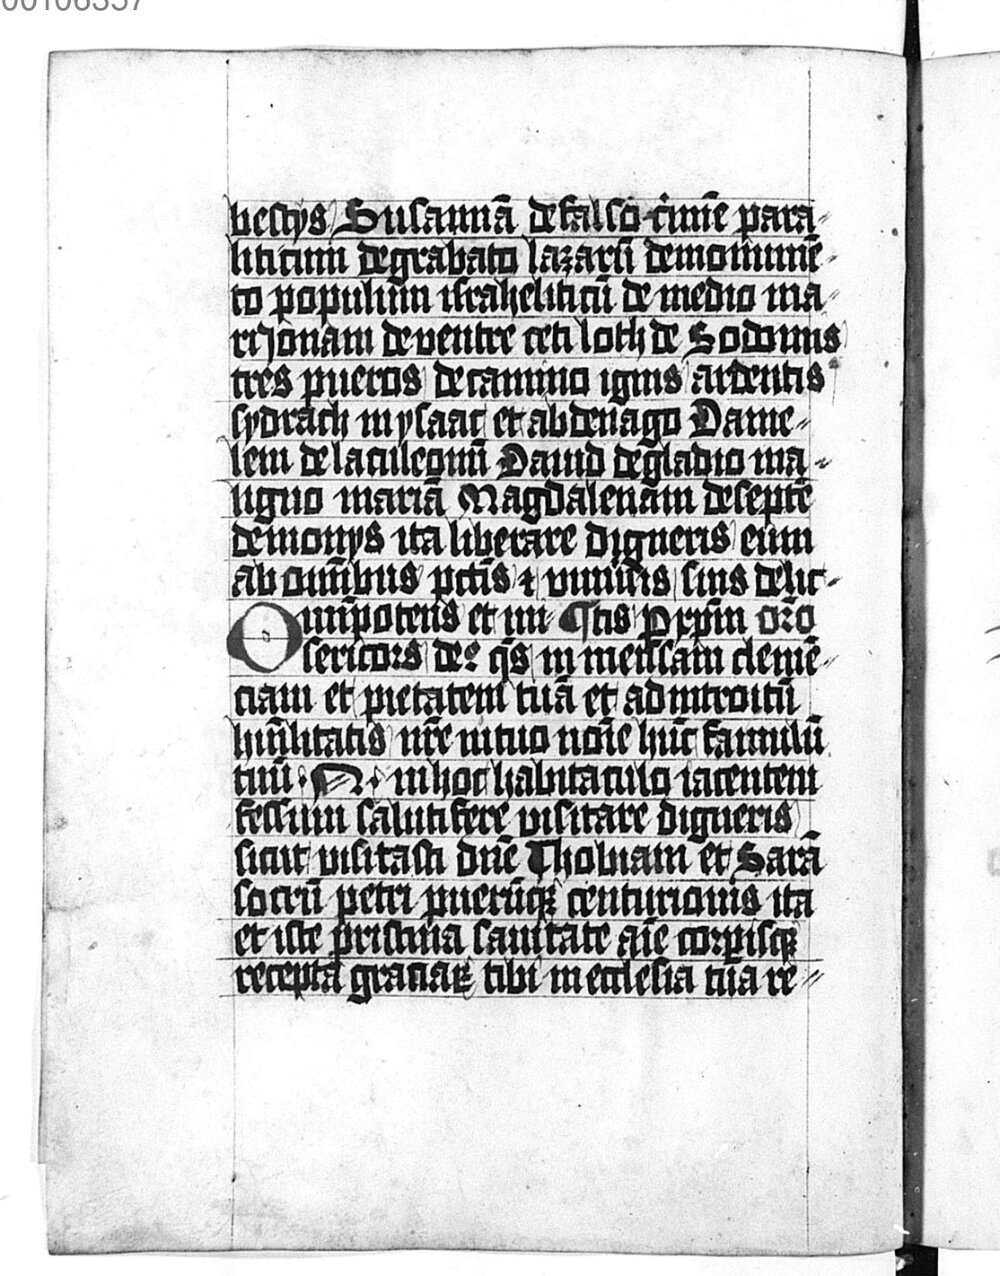 00106357
bestijs Susannā de falso c̄mīe para-
liticum de grabato lazarū de monumē-
to populum israheliticū de medio ma-
ri Jonam de ventre ceti loth de Sodomis
tres pueros de camino ignis ardentis
sydrach mysaac et abdenago Danie-
lem de lacu leonū Dauid de gladio ma-
ligno mariā Magdalenam de septē
demonijs ita liberare digneris eum
ab omībus pctīs ⁊ vinculis suis de hic
Omīpotens et mi- ¶ tis p xpm̄ orō
sericors deꝰ qs̄ inmensam clemē-
ciam et pietatem tuā et ad introitū
hūilitatis nr̄e ut in tuo noīe hūc famulū
tuū .N. in hoc habitaculo iacentem
fessum salutifere visitare digneris
sicut visitasti dn̄e Thobiam et Sarā
socrū petri puerūqꝫ centurionis ita
et iste pristina sanitate aīe corpisqꝫ
recepta graciaꝝ tibi in ecclesia tua re-